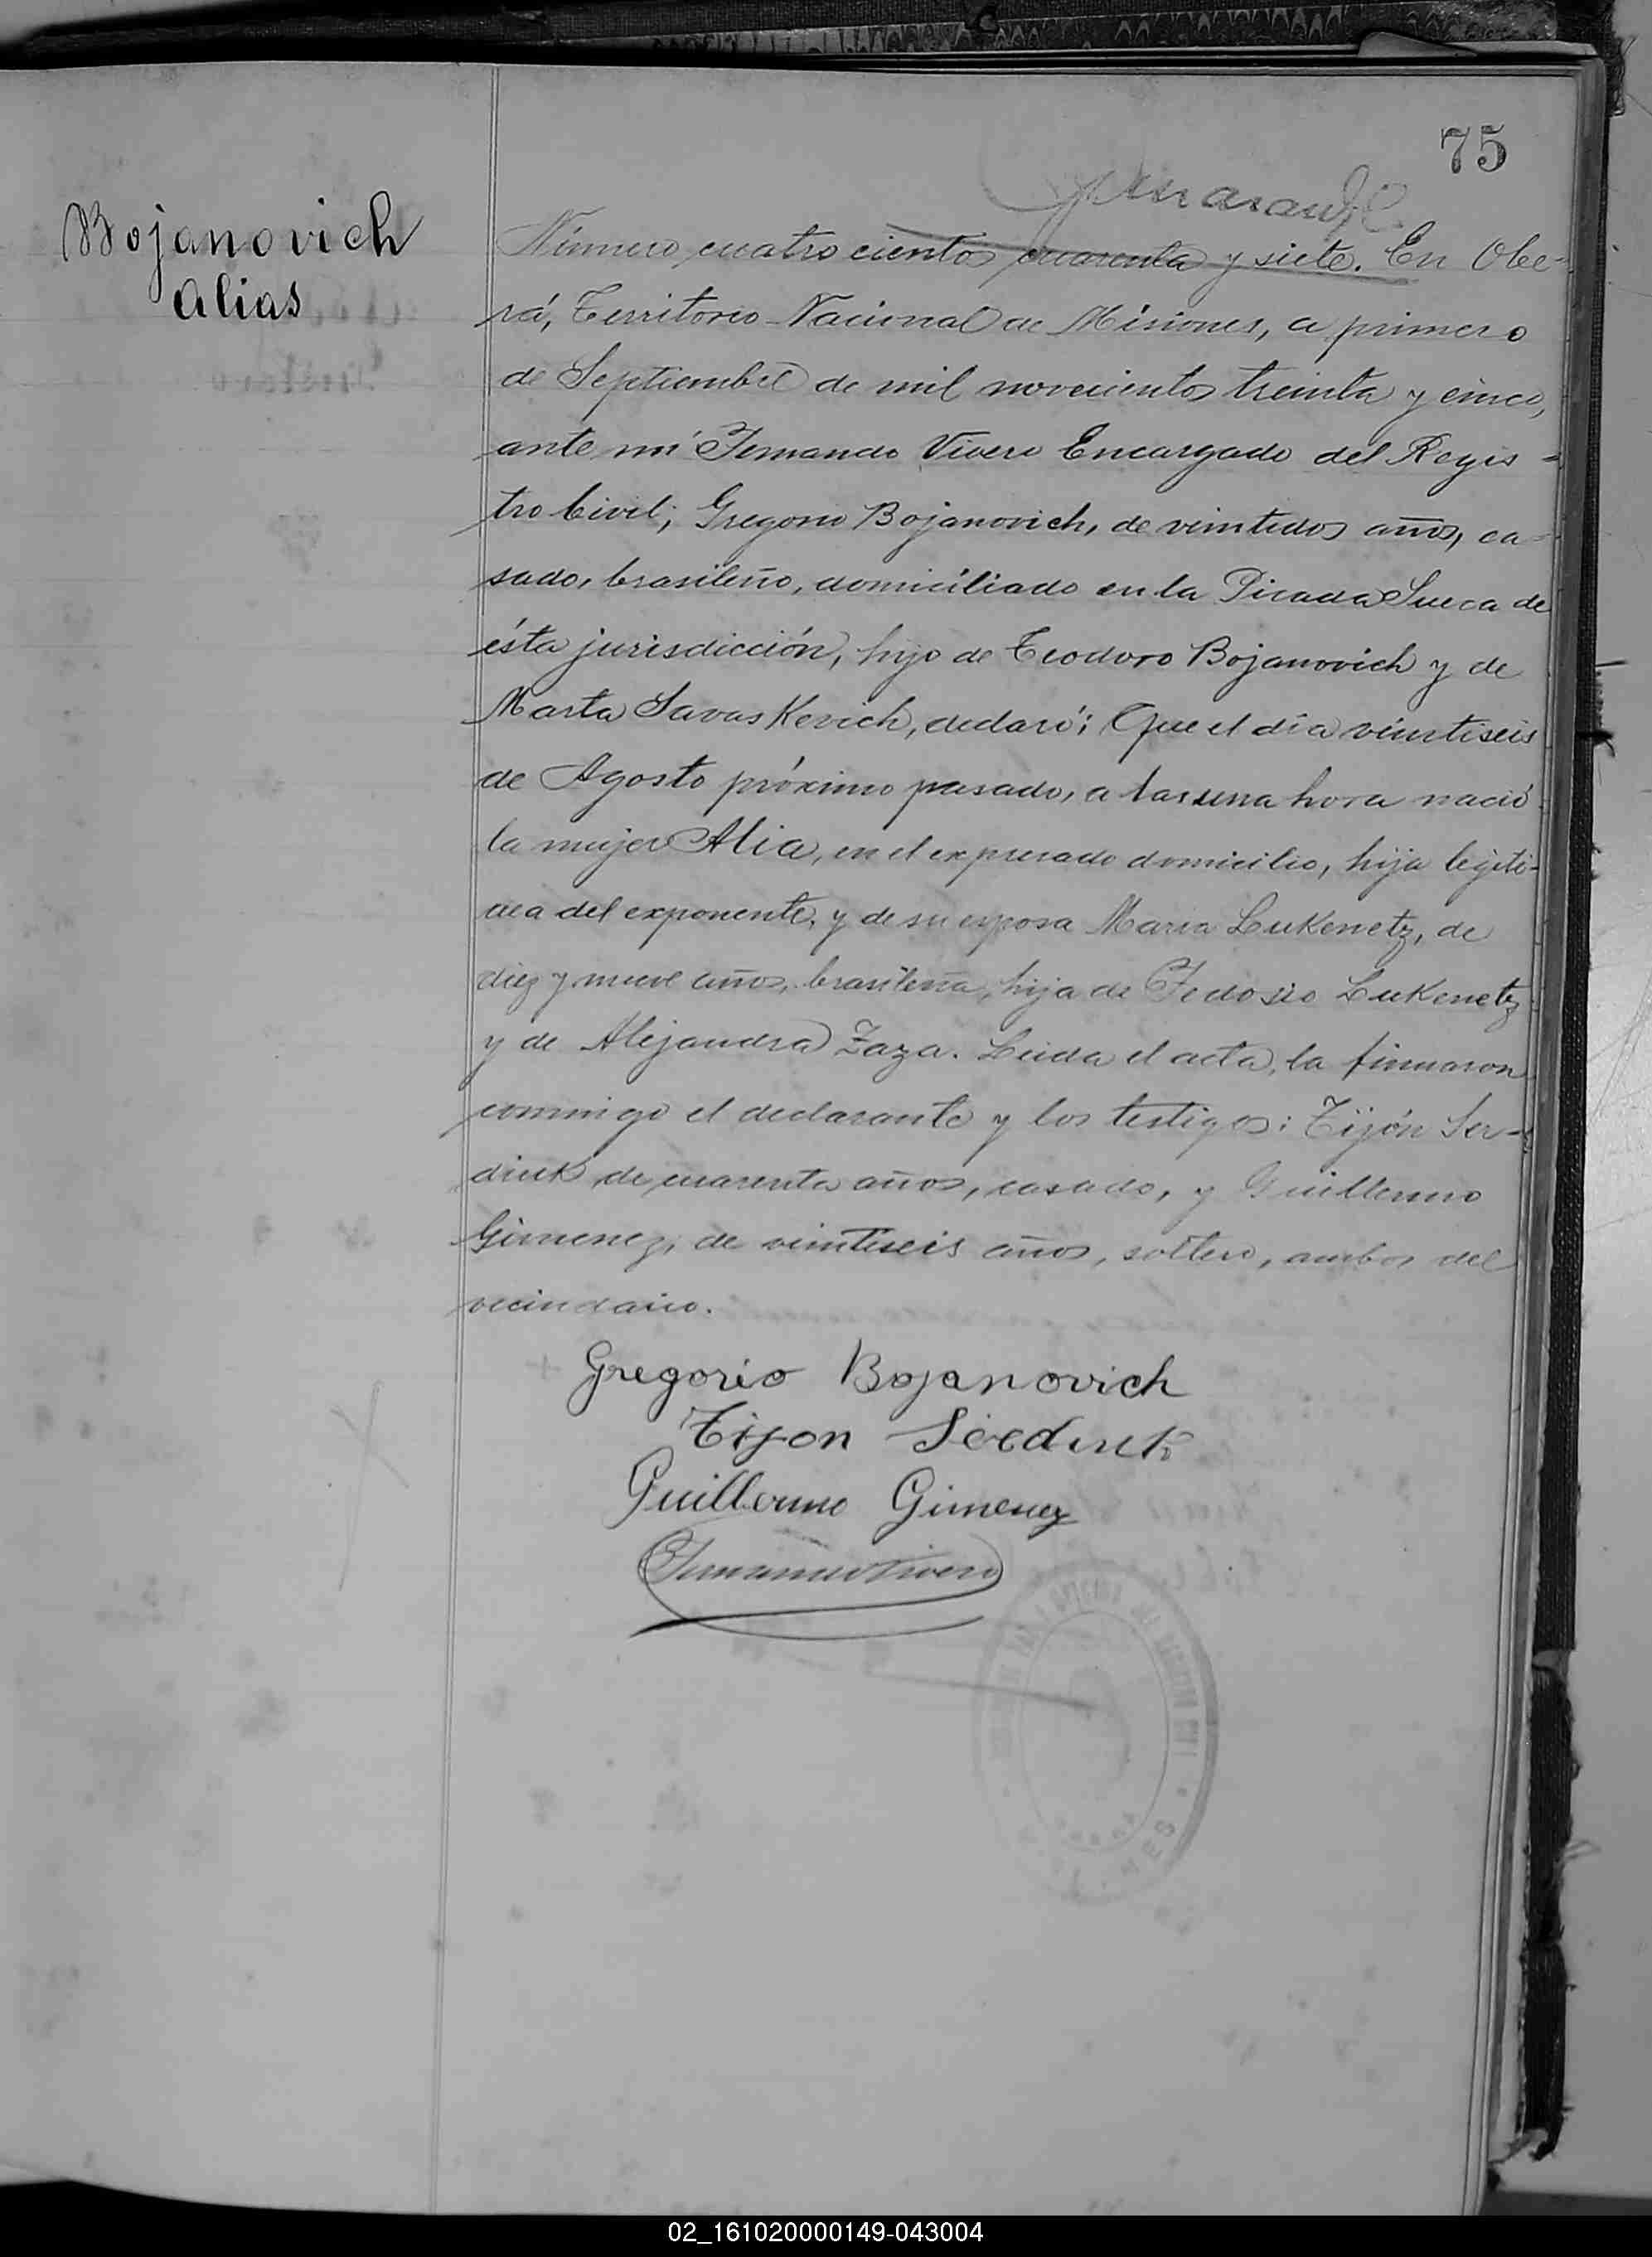 75
Bojanovich
Alias
Número cuatrocientos cuarenta y siete. En Obe-
rá, Territorio Nacional de Misiones, a primero
de Septiembre de mil novecientos treinta y cinco,
ante mí Fernando Vivero Encargado del Regis-
tro Civil; Gregorio Bojanovich, de veintidos años, ca-
sado, brasileño, domiciliado en la Picada Sueca de
ésta jurisdicción, hijo de Teodoro Bojanovich y de
Marta Savaskevich, declaró: Que el día veintiseis
de Agosto próximo pasado, a las una hora nació
la mujer Alia, en el expresado domicilio, hija legíti-
ma del exponente, y de su esposa Maria Lukenetz, de
diez y nueve años, brasileña, hija de Fedosio Lukenetz
y de Alejandra Zaza. Leida el acta, la firmaron
conmigo el declarante y los testigos: Tijón Ser-
diuk de cuarenta años, casado, y Guillermo
Gimenez, de veintiseis años, soltero, ambos del
vecindario.
Gregorio Bojanovich
Tijon Serdiuk
Guillermo Gimenez
Fernando Vivero
02_161020000149-043004